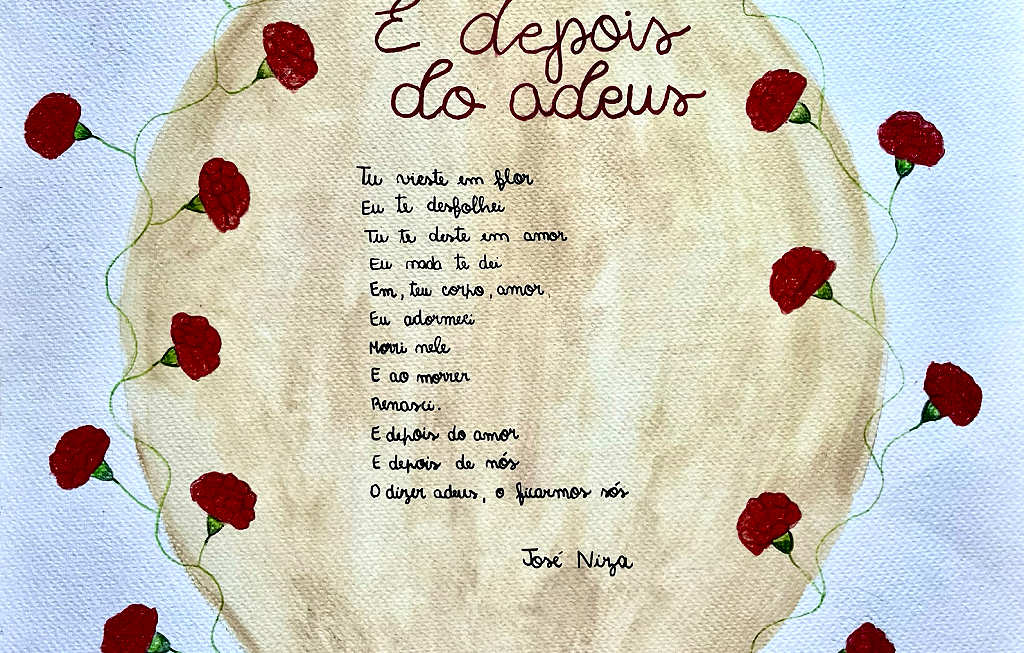 E depois
do adeus
Tu vieste em flor
Eu te desfolhei
Tu te deste em amor
Eu nada te dei
Em, teu corpo, amor,
Eu adormeci
Morri nele
E ao morrer
Renasci.
E depois do amor
E depois de nós
O dizer adeus, o ficarmos sós
José Niza